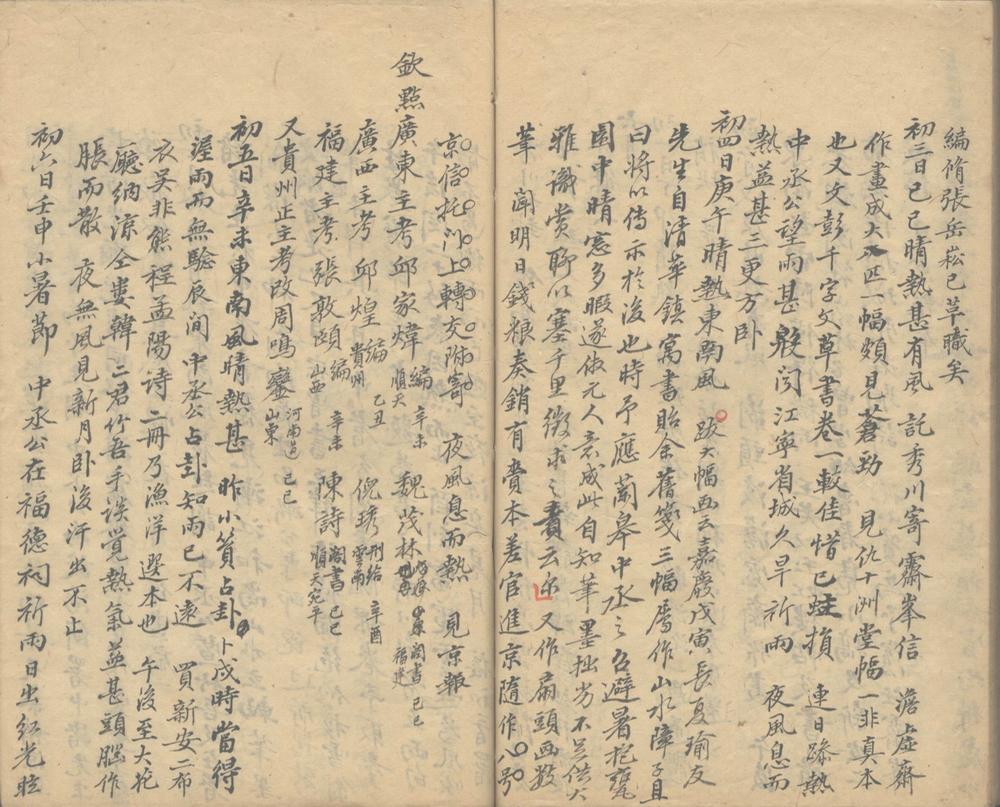 編脩張岳崧已革職矣
初三日己巳晴熱甚有風 託秀川寄霽峯信 澹虛齋
作畫成大疋一幅頗見蒼勁 見仇十洲堂幅一非真本
也又文彭千字文草書卷一較佳惜已蛀損 連日燥熱
中丞公望雨甚殷 聞江寧省城久旱祈雨 夜風息而
熱益甚三更方卧
初四日庚午晴熱東南風 跋大幅畫云嘉慶戊寅長夏瑜友
先生自清華鎮寓書貽余舊箋三幅屬作山水障子且
曰將以傳示於後也時予應蘭皋中丞之召避暑抱甕
園中晴窓多暇遂倣元人意成此自知筆墨拙劣不足供大
雅識賞聊以塞千里徵求之責云尔 又作扇頭畫数
筆 聞明日錢粮奏銷有賫本差官進京隨作八号
京信托門上轉交附寄 夜風息而熱 見京報
欽點廣東主考邱家煒 編 順天 辛未 魏茂林 己巳 福建
廣西主考邱煌 編 貴州 乙丑 倪琇 刑給 雲南 辛酉
福建主考張敦頤 編 山西 辛未 陳詩 閣書 己巳 順天宛平
又貴州正主考改周鳴鑾 河南道 己巳 山東
初五日辛未東南風晴熱甚 昨小篔占卦卜戌時當得
渥雨而無驗辰間中丞公占卦知雨已不遠 買新安二布
衣吳非熊程孟陽詩二冊乃漁洋選本也 午後至大花
廳納涼仝婁韓二君竹吾手談覺熱氣益甚頭腦作
脹而散 夜無風見新月卧後汗出不止
初六日壬申小暑節 中丞公在福德祠祈雨日出紅光眩